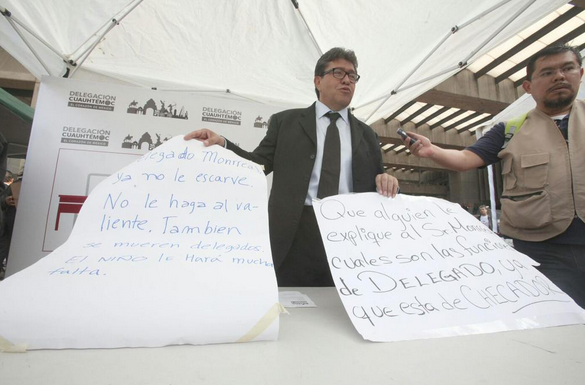 DELEGACIÓN
CUAUHTÉMOC
EL CORAZÓN DE MÉXICO
DELEGACIÓN
CUAUHTÉMOC
DELEGACIÓN
CUAUHTÉMOC
Monreal
ya no le escarve.
No le haga al va-
liente. Tambien
se mueren delegados.
El NIÑO lE HARá mucha
falta.
Que alguien le
explique al Sr Mon
cuales son las funcio
de DELEGADO, ya
que esta de CHECADOR